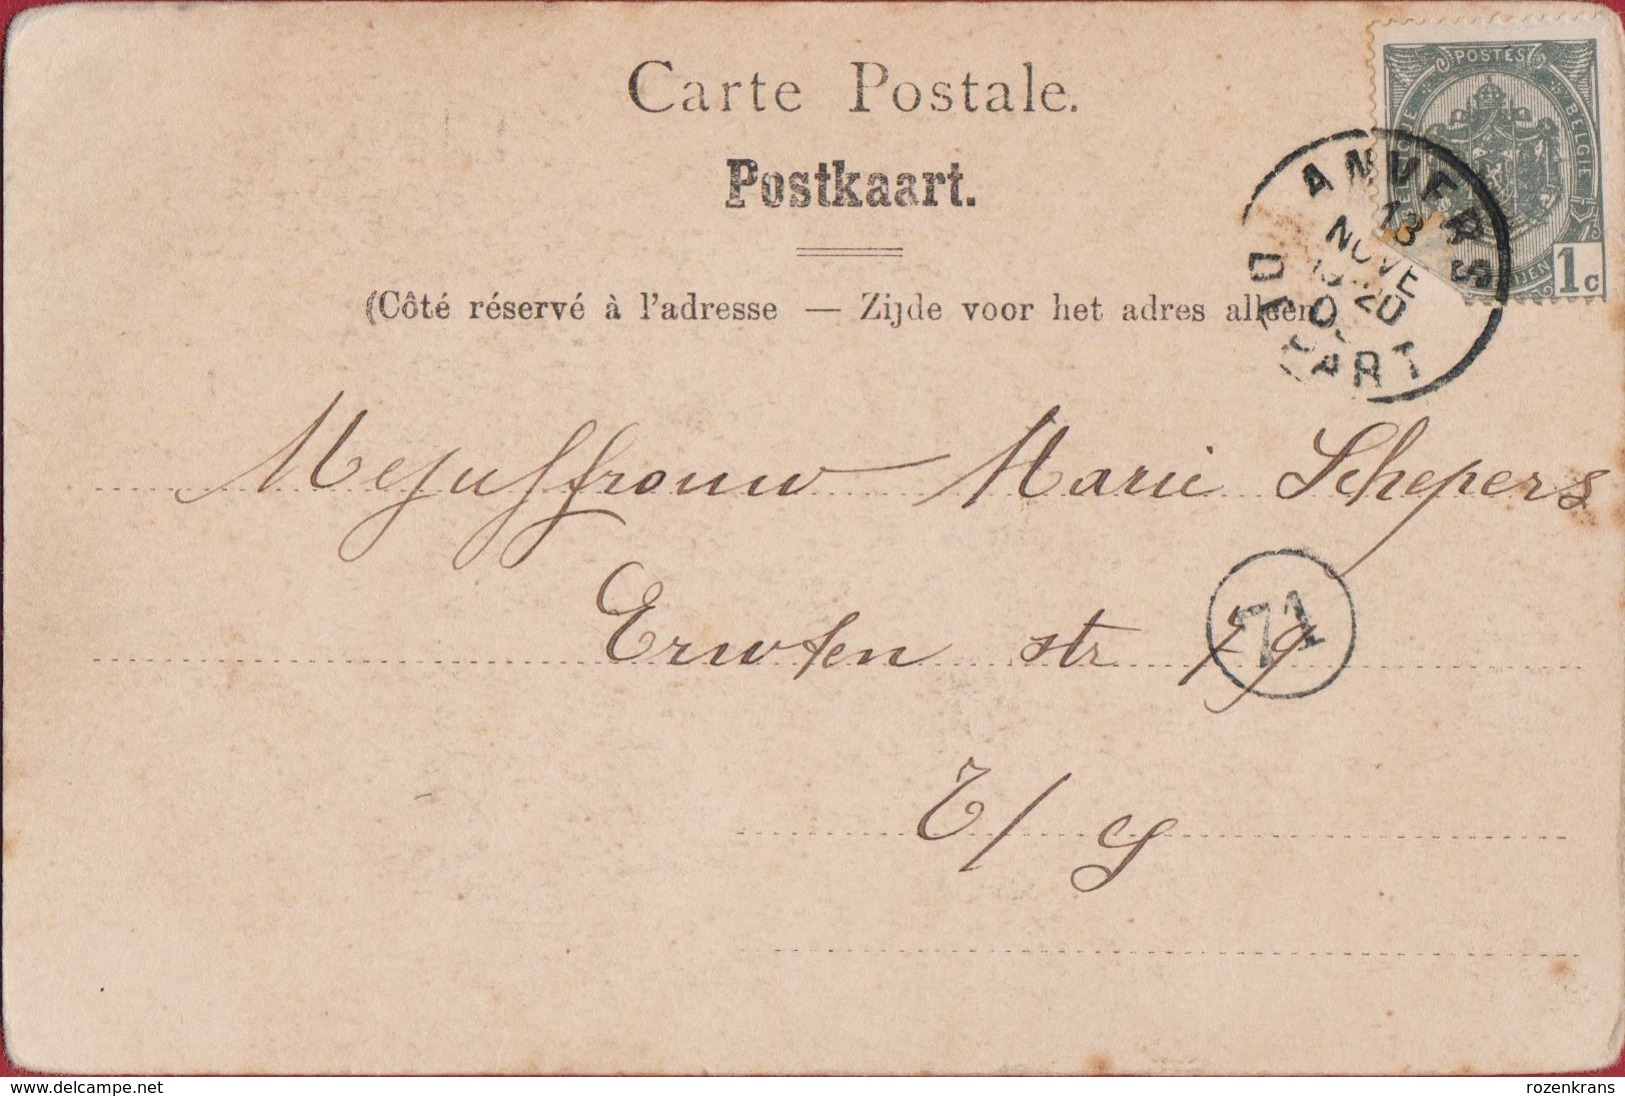 Carte Postale.
Postkaart.
(Côté réservé à l'adresse — Zijde voor het adres alleen
POSTES
BELGIE
1c
ANVERS
13
NOVE
20
DÉPART
Mejuffrouw Marie Schepers
Erwten str 79
71
T/S
delcampe.net
rozenkrans